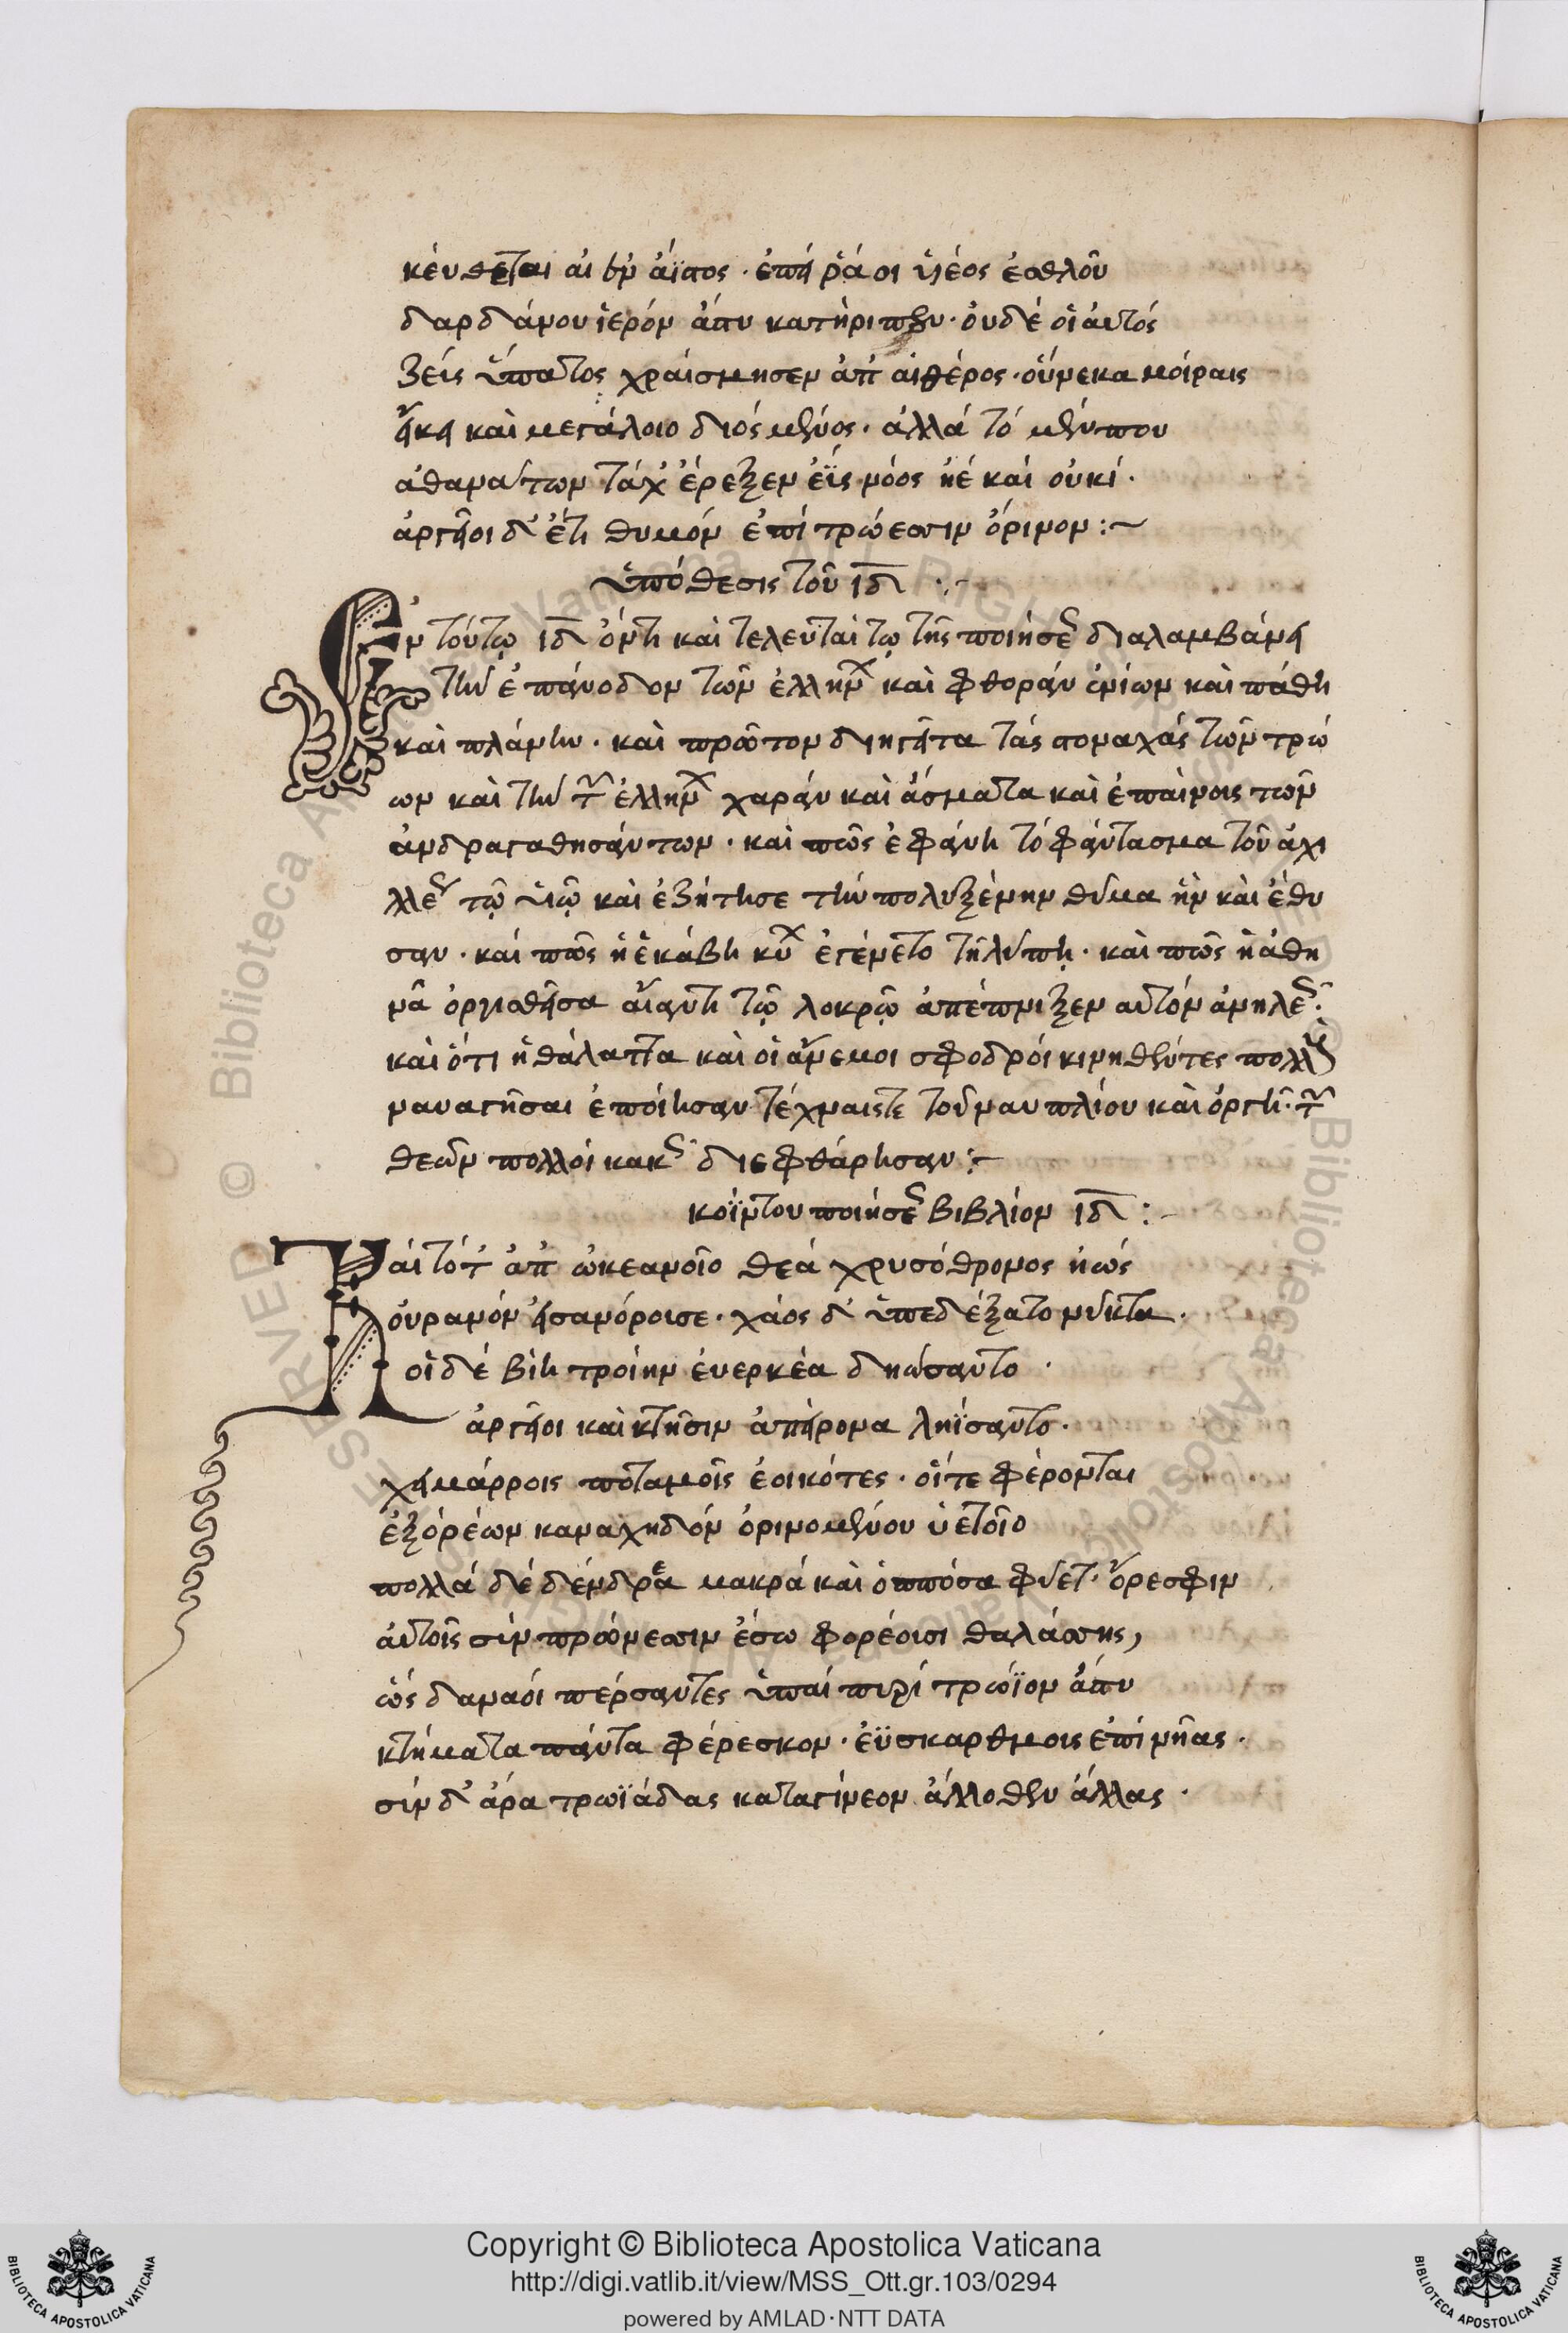 κεύθεται αἰὲν ἄϊστος. ἐπεί ῥά οἱ υἱέος ἐσθλοῦ
δαρδάνου ἱερόν ἄστυ κατήριπεν. οὐδέ οἱ αὐτός
ζεύς ὕπατος χραίσμησεν ἀπ' αἰθέρος. οὕνεκα μοίραις
εἴκει καὶ μεγάλοιο διός μένος. ἀλλά τό μέν που
ἀθανάτων τάχ' ἔρεξεν ἐΰς νόος ἠέ καί οὐκί.
ἀργεῖοι δ' ἔτι θυμόν ἐπί τρώεσσιν ὄρινον:~
ὑπόθεσις τοῦ ιδ :~
Ἐν τούτῳ ιδ ὄντι καὶ τελευταίῳ τῆς ποιήσεως διαλαμβάνει
τὴν ἐπάνοδον τῶν ἑλλήνων καὶ φθοράν ἐνίων καὶ πάθη
καὶ πλάνην. καὶ πρῶτον διηγεῖτα τάς στοναχάς τῶν τρώ
ων καὶ τὴν τῶν ἑλλήνων χαράν καὶ ᾄσματα καὶ ἐπαίνοις τῶν
ἀνδραγαθησάντων. καὶ πῶς ἐφάνη τό φάντασμα τοῦ ἀχι
λλέως τῷ υἱῷ καὶ ἐζήτησε τὴν πολυξένην θῦμα ἣν καὶ ἔθυ
σαν. καί πῶς ἡ ἑκάβη κύων ἐγένετο τῇ λύπῃ. καὶ πῶς ἡ ἀθη
νᾶ ὀργισθεῖσα αἴαντι τῷ λοκρῷ ἀπέπνιξεν αὐτόν ἀνηλεῶς.
καὶ ὅτι ἡ θάλαττα καὶ οἱ ἄνεμοι σφοδρόι κινηθέντες πολλούς
ναυαγῆσαι ἐποίησαν τέχναις τε τοῦ ναυπλίου καὶ ὀργῇ. τῶν
θεῶν πολλοί κακῶς διεφθάρησαν:~
κοΐντου ποιήσεως βιβλίον ιδ :~
Καί τότ' ἀπ' ὠκεανοῖο θεά χρυσόθρονος ἠώς
οὐρανόν εἰσανόροισε. χάος δ' ὑπεδέξατο νύκτα.
οἱ δέ βίῃ τροίην ἐυερκέα δηώσαντο.
ἀργεῖοι καὶ κτῆσιν ἀπείρονα ληΐσαντο.
χειμάρροις ποταμοῖς ἐοικότες. οἵτε φέρονται
ἐξ ὀρέων καναχηδόν ὀρινομένου ὑετοῖο
πολλά δέ δένδρεα μακρά καὶ ὁππόσα φύετ' ὄρεσφιν
αὐτοῖς σύν πρώνεσσιν ἔσω φορέοισι θαλάσσης,
ὥς δαναοί πέρσαντες ὑπαί πυρί τρώϊον ἄστυ
κτήματα πάντα φέρεσκον. ἐϋσκάρθμοις ἐπί νῆας.
σύν δ' ἄρα τρωϊάδας καταγίνεον ἄλλοθεν ἄλλας.
Copyright © Biblioteca Apostolica Vaticana
http://digi.vatlib.it/view/MSS_Ott.gr.103/0294
powered by AMLAD·NTT DATA